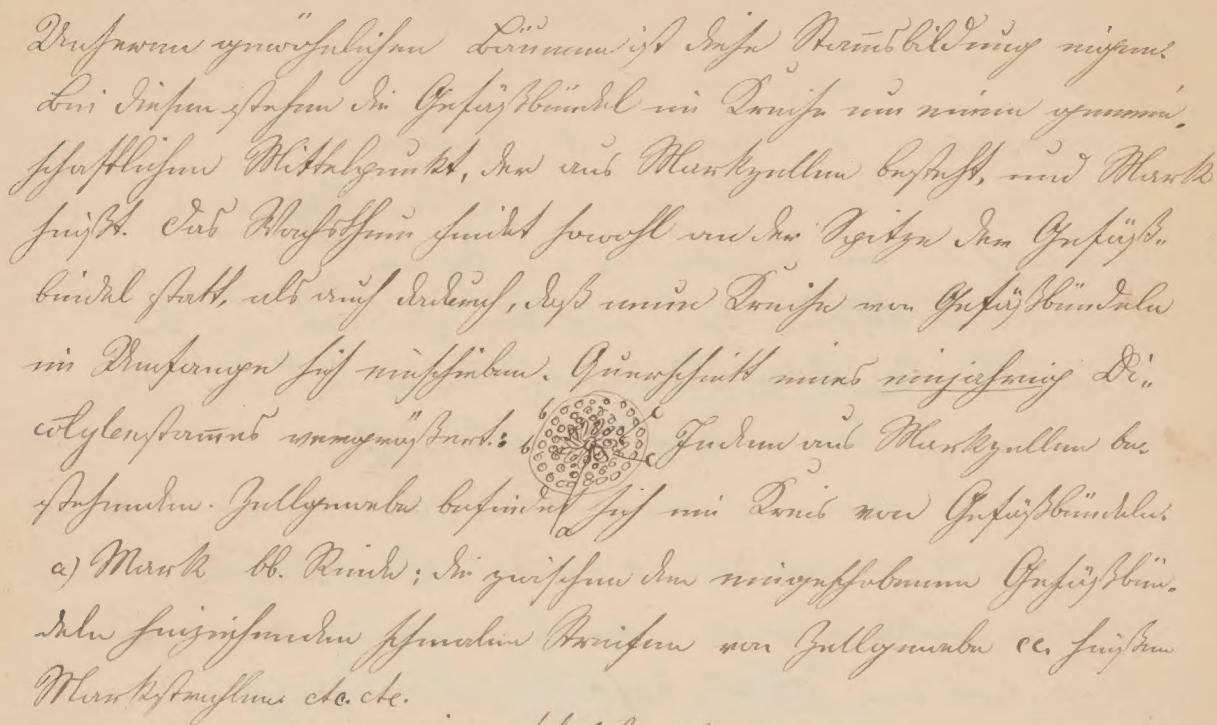 Unseren gewöhnlichen Bäumen ist diese Stammsbildung eigen.
Bei diesen stehen die Gefäßbündel im Kreise um einen gemein-
schaftlichen Mittelpunkt, der aus Markzellen besteht, und Mark
heißt. Das Wachsthum findet sowohl an der Spitze der Gefäß-
bündel statt, als auch dadurch, daß neue Kreise von Gefäßbündeln
im Umfange sich einschieben. Querschnitt eines einjährig Di-
cotylenstammes vergrößert.: b b c c a In dem aus Markzellen be-
stehenden. Zellgewebe befindet sich ein Kreis von Gefäßbündeln.
a) Mark bb. Rinde; die zwischen den eingeschobenen Gefäßbün-
deln hinziehenden schmalen Streifen von Zellgewebe cc. heißen
Markstrahlen. etc. etc.